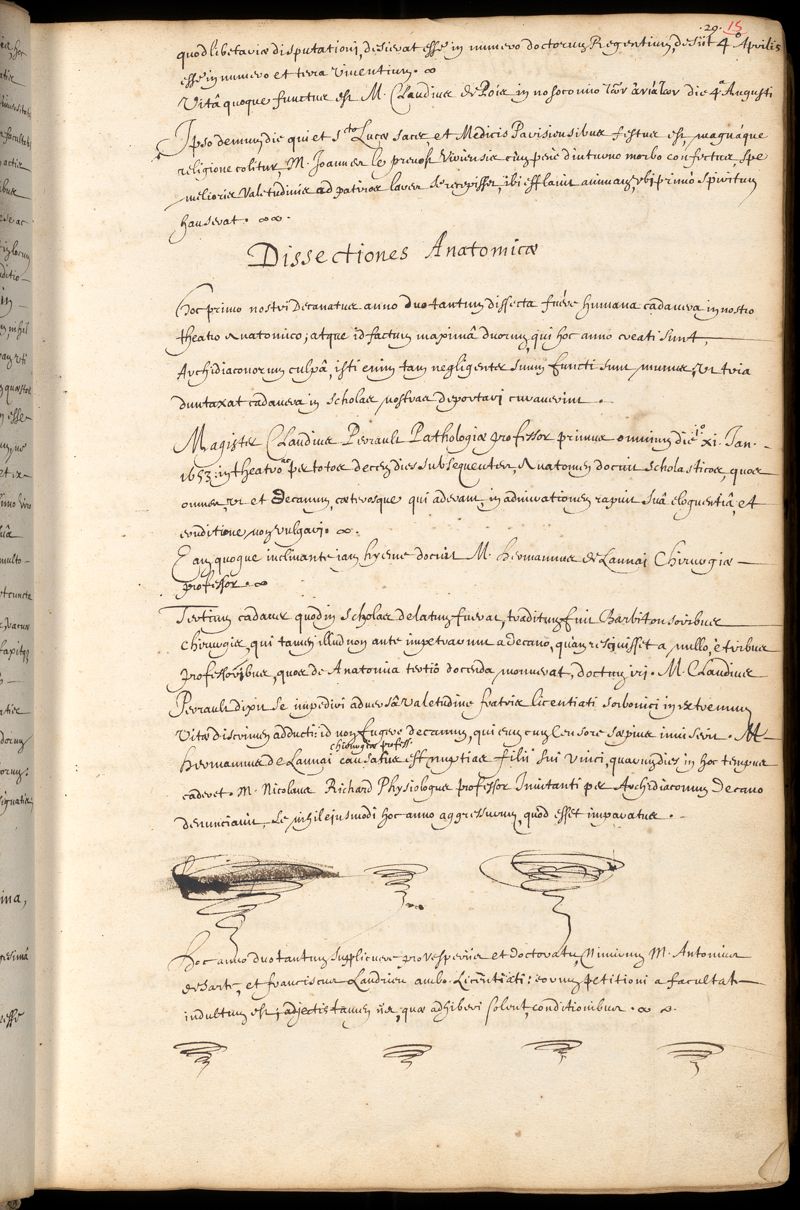 .29. 15
quodlibetariæ disputationi, desierat esse in numero doctorum Regentium, desiit 4º Aprilis
esse in numero et terra viventium. ∞
Vitâ quoque functus est M. Claudius de Pois in nosocomio τῶν ἀνιάτων die 4ª Augusti
Ipso demum die qui et S.cto Lucæ sacer, et Medicis Parisiensibus festus est, magnáque
religione colitur, M. Joannes le prevost diuturno morbo confectus, spe
melioris valetudinis ad patrios lares se recepisset, ibi efflavit animam, ubi primò spiritum
hauserat. ∞∞.
Dissectiones Anatomicæ
Hoc primo nostri Decanatus anno duo tantum dissecta fuêre humana cadavera in nostro
theatro anatomico; atque id factum maximâ duorum, qui hoc anno creati sunt,
Archidiaconorum culpâ, isti enim tam negligenter suum functi sunt munus, ut tria
duntaxat cadavera in scholas nostras deportari curaverint.
Magister Claudius Perrault Pathologiæ professor primus omnium die xi. Jan.
1653. in theatro per totos decem dies subsequentes, Anatomen docuit scholasticos, quos
omnes, ut et Decanum, cæterosque qui aderant, in admirationem rapuit suâ eloquentiâ, et
eruditione non vulgari. ∞.
Eam quoque inclinante iam hyeme docuit M. Hermannus de Launai Chirurgiæ
professor. ∞
Tertium cadaver quod in scholas delatum fuerat, traditum fuit Barbitonsoribus
chirurgis, qui tamen illud non ante impetrarunt a decano, quam rescivisset a nullo, è tribus
professoribus, quos de Anatomia tertiò docenda monuerat, doctum iri. M. Claudius
Perrault dixit se impediri adversâ valetudine fratris licentiati sorbonici in extremum
vitæ discrimen adducti: id non fugere decanum, qui eum cum Censore sæpius inviserit. M.
chirurgiæ profess.
Hermannus de Launai causatus est nuptias filii sui unici, quarum dies in hoc tempus
caderet. M. Nicolaus Richard Physiologus professor Invitanti per Archidiaconum Decano
denunciavit, se nihil ejusmodi hoc anno aggressurum, quod esset imparatus.
Hoc anno duo tantum supplicuere pro vesperiis et doctoratu, Nimirum M. Antonius
de Sarte, et franciscus Landrieu ambo Licentiati: eorum petitioni a facultate
indultum est; adjectis tamen iis, quæ adhiberi solent, conditionibus. ∞ ∞.